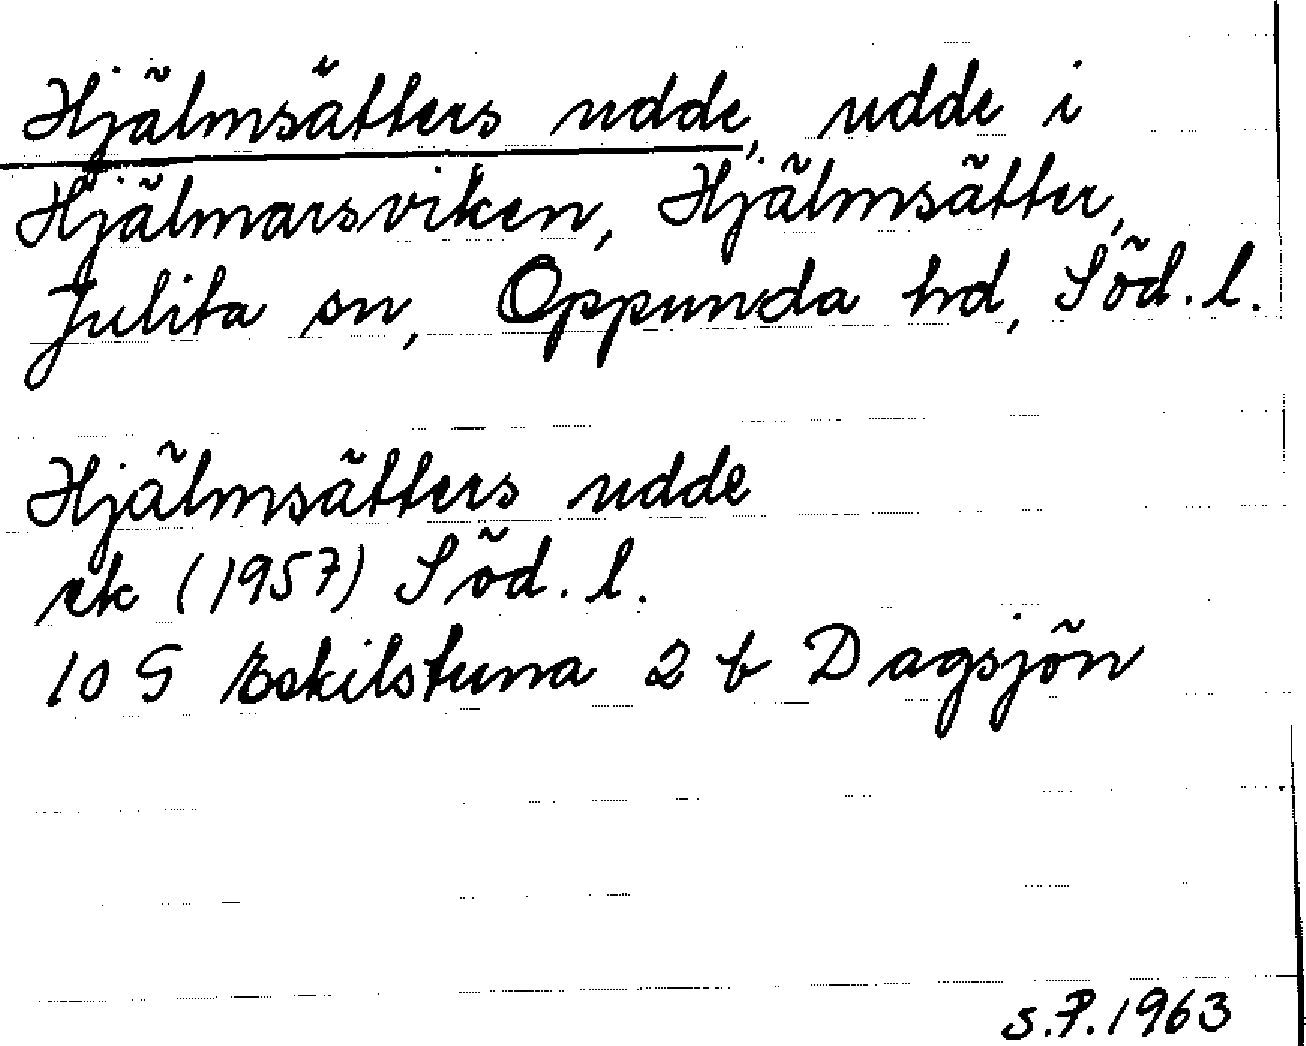 Hjälmsätters udde, udde i
Hjälmarsviken, Hjälmsätter,
Julita sn, Oppunda hd, Söd.l.
Hjälmsätters udde
ek (1957) Söd.l.
10 G Eskilstuna 2 b Dagsjön
S.P. 1963